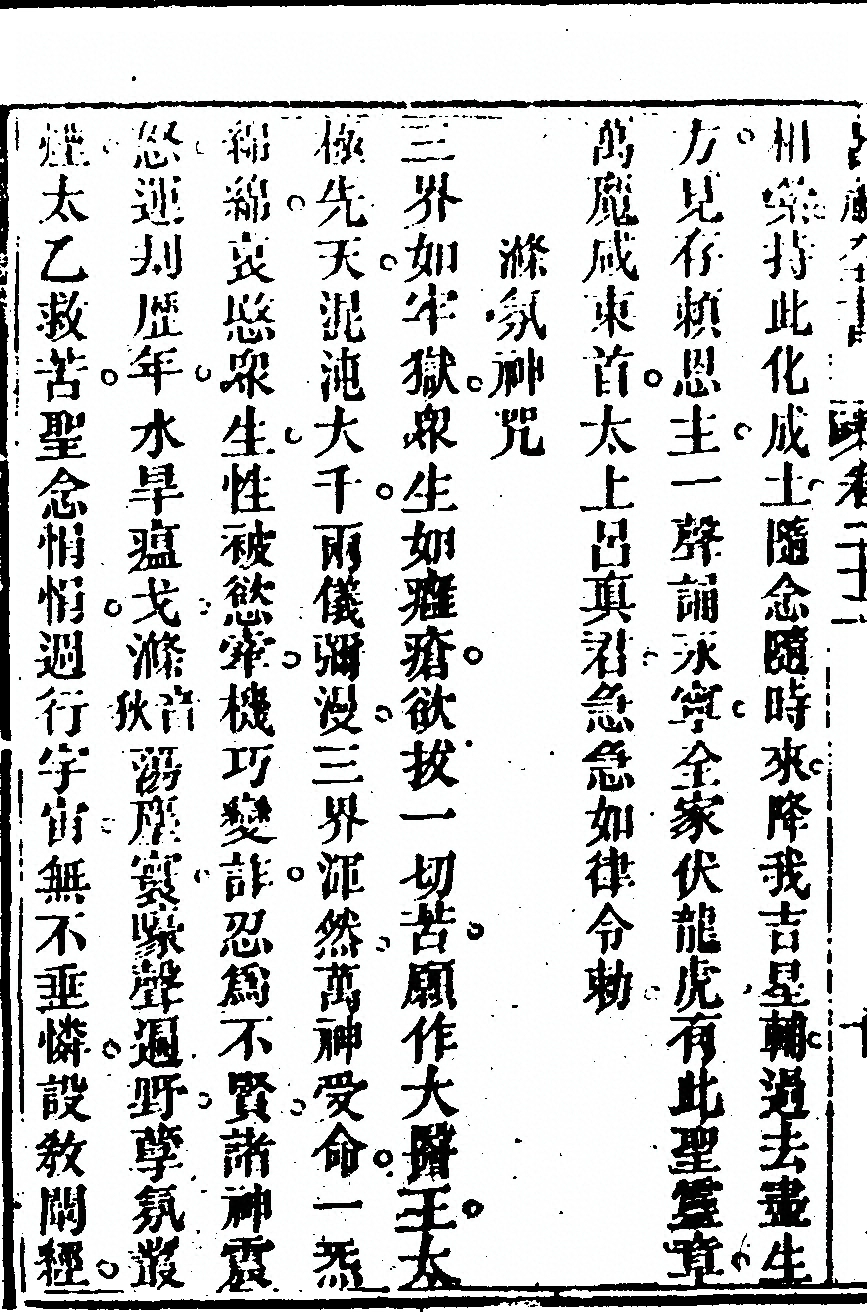 相持此化成土隨念隨時來降我吉星輔過去盡生
方見存賴恩主一聲誦永寧全家伏龍虎有此聖靈章
萬魔咸束首太上呂真君急急如律令勅
滌氛神咒
三界如牢獄眾生如癰瘡欲拔一切苦願作大醫王太
極先天混沌大千兩儀彌漫三界渾然萬神受命一炁
綿綿哀愍眾生性被慾牽機巧變詐忍為不賢諸神震
怒運刼歷年水旱瘟戈滌音狄蕩塵寰聲遍野孽氛叢
煙太乙救苦聖念悄悄過行宇宙無不垂憐設教闡經